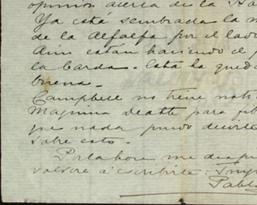 opinion acerca de la Ha
Ya está sembrada la
de la Alfalfa por el lado
Aun están haciendo el
la barda. Esta la queda
buena.
Campbell no tiene
Maquina de para
que nada puedo decirte
sobre esto.
Por ahora me
volveré á escribirte
Pablo